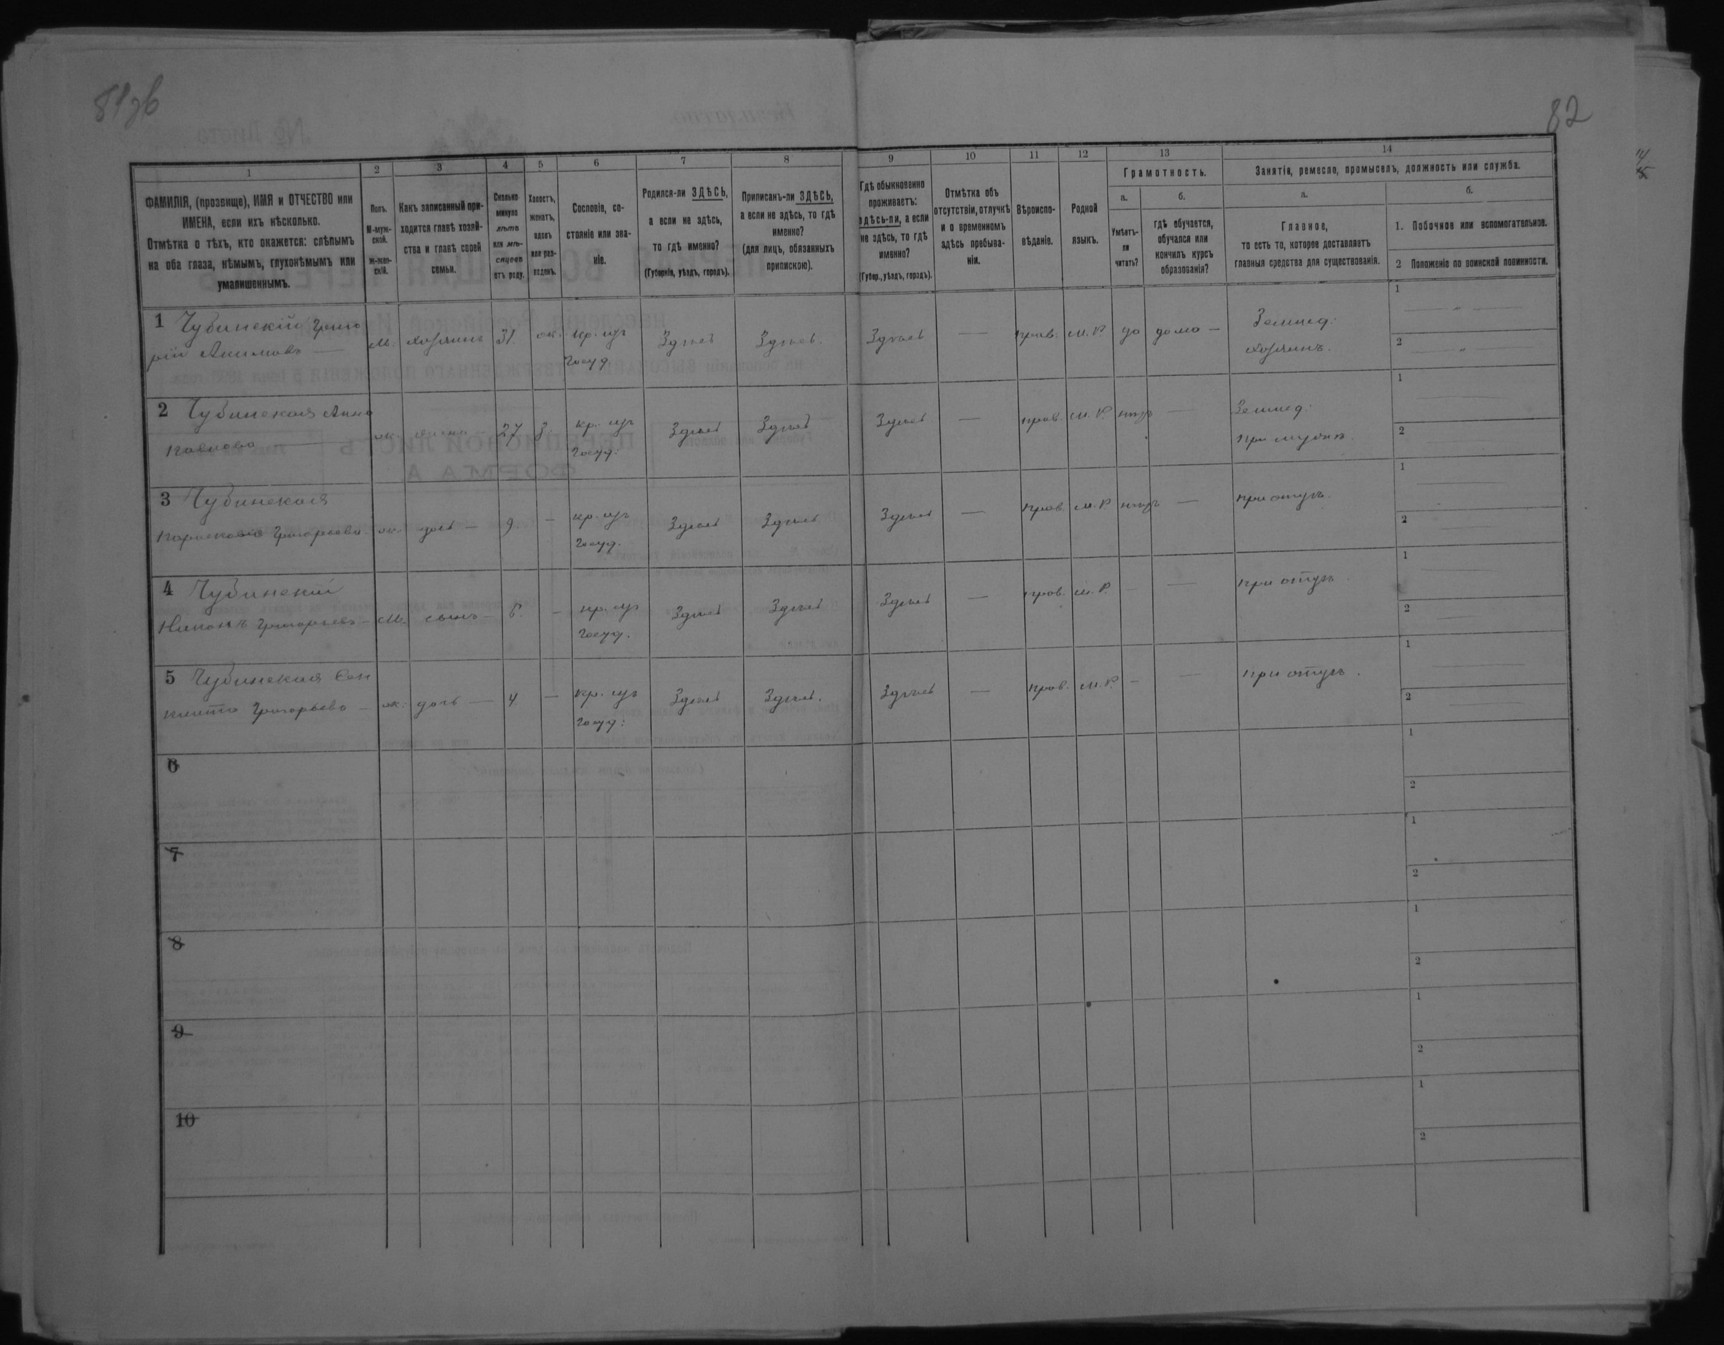 81зв
82
1
2
3
4
5
6
7
8
9
10
11
12
13
14
ФАМИЛІЯ, (прозвище), ИМЯ и ОТЧЕСТВО или
ИМЕНА, если ихъ нѣсколько.
Отмѣтка о тѣхъ, кто окажется: слѣпымъ
на оба глаза, нѣмымъ, глухонѣмымъ или
умалишеннымъ.
Полъ.
М-муж-
ской.
Ж-жен-
скій.
Какъ записанный при-
ходится главѣ хозяй-
ства и главѣ своей
семьи.
Сколько
минуло
лѣтъ
или мѣ-
сяцевъ
отъ роду.
Холостъ,
женатъ,
вдовъ
или раз-
веденъ.
Сословіе, со-
стояніе или зва-
ніе.
Родился-ли ЗДѢСЬ,
а если не здѣсь,
то гдѣ именно?
(Губернія, уѣздъ, городъ).
Приписанъ-ли ЗДѢСЬ,
а если не здѣсь, то гдѣ
именно?
(для лицъ, обязанныхъ
припискою).
Гдѣ обыкновенно
проживаетъ:
здѣсь-ли, а если
не здѣсь, то гдѣ
именно?
(Губер., уѣздъ, городъ).
Отмѣтка объ
отсутствіи, отлучкѣ
и о временномъ
здѣсь пребыва-
ніи.
Вѣроиспо-
вѣданіе.
Родной
языкъ.
Грамотность.
а.
б.
Умѣетъ-
ли
читать?
гдѣ обучается,
обучался или
кончилъ курсъ
образованія?
Занятія, ремесло, промыселъ, должность или служба.
а.
б.
Главное,
то есть то, которое доставляетъ
главныя средства для существованія.
1. Побочное или вспомогательное.
2 Положеніе по воинской повинности.
1 Чубинскій Григо
рій Акимовъ — м. хозяинъ 31 ж. кр. изъ госуд. Здѣсь Здѣсь. Здѣсь — прав. м. Р да дома — Землед. хозяинъ. 1 2
2 Чубинская Анна
ж. 27 з кр. изъ госуд. Здѣсь Здѣсь Здѣсь — прав. м. Р нѣтъ — Землед. при мужѣ. 1 2
3 Чубинская
Григорьева ж. дочь — 9 — кр. изъ госуд. Здѣсь Здѣсь Здѣсь — прав. м. Р нѣтъ — при отцѣ. 1 2
4 Чубинскій
Григорьевъ — м. сынъ — — кр. изъ госуд. Здѣсь Здѣсь Здѣсь — прав. м. Р. — — при отцѣ. 1 2
5 Чубинская
Григорьева — ж. дочь — 4 — кр. изъ госуд. Здѣсь Здѣсь. Здѣсь — прав. м. Р. — — при отцѣ. 1 2
6 1 2
7 1 2
8 1 2
9 1 2
10 1 2